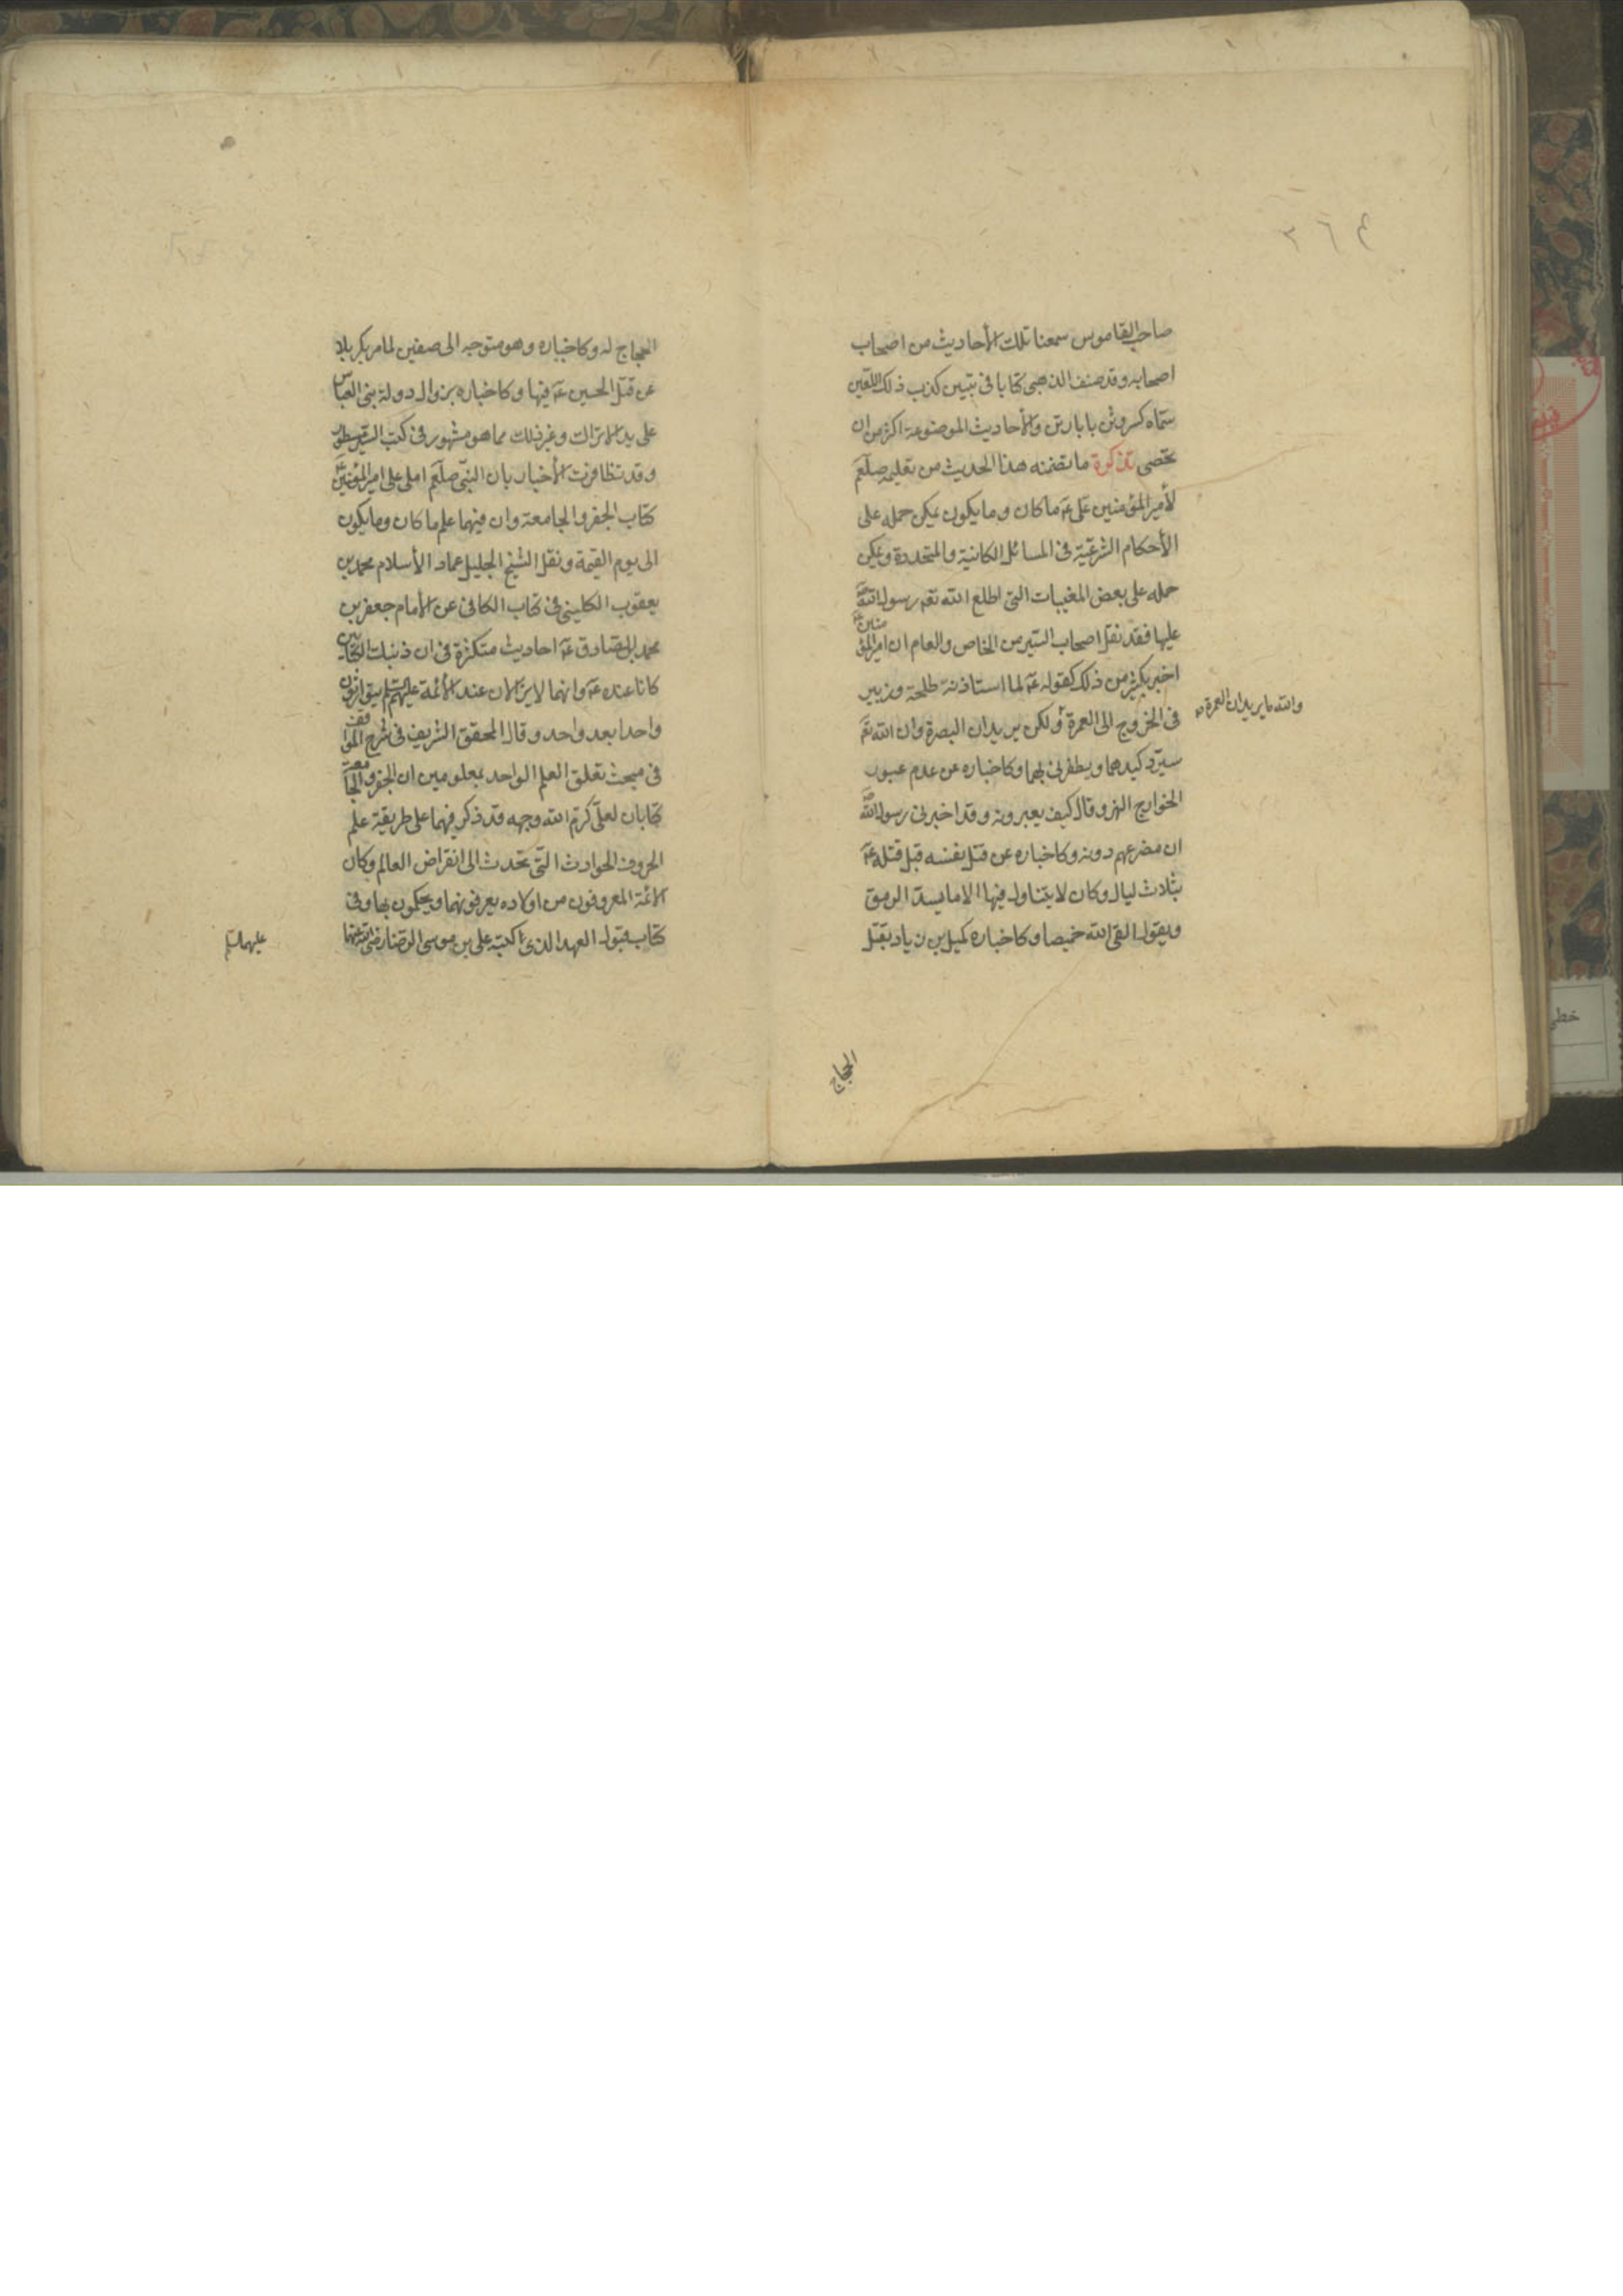 ٣٦٤
صاحب القاموس سمعنا تلك الأحاديث من اصحاب
اصحابه وقد صنف الذهبى كتابا فى تبيين كذب ذلك اللعين
سماه كسر وثن بابا رتن والأحاديث الموضوعة اكثر من ان
تحصى تذكرة ما تضمنه هذا الحديث من تعليمه صلعم
لأمير المؤمنين على عم ما كان وما يكون يمكن حمله على
الأحكام الشرعية فى المسائل الكائنة والمتجددة ويمكن
حمله على بعض المغيبات التى اطلع الله تعم رسول الله ص
عليها فقد نقل اصحاب السير من الخاص والعام ان امير المؤمنين عم
اخبر بكثير من ذلك كقوله عم لما استاذنه طلحة وزبير
فى الخروج الى العمرة ولكن يريدان البصرة وان الله تعم
والله ما يريدان العمرة
سيرد كيدهما ويظفرنى بهما وكاخباره عن عدم عبور
الخوارج النهر وقال كيف يعبرونه وقد اخبرنى رسول الله ص
ان مصرعهم دونه وكاخباره عن قتل نفسه قبل قتله عم
بثلاث ليال وكان لا يتناول فيها الا ما يسد الرمق
ويقول القى الله خميصا وكاخباره كميل بن زياد بقتل
الحجاج
الحجاج له وكاخباره وهو متوجه الى صفين لما مر بكربلا
عن قتل الحسين عم فيها وكاخباره بزوال دولة بنى العباس
على يد الاتراك وغير ذلك مما هو مشهور فى كتب السير مسطور
وقد تظافرت الأخبار بان النبى صلعم املى على امير المؤمنين عم
كتاب الجفر والجامعة وان فيهما علم ما كان وما يكون
الى يوم القيمة ونقل الشيخ الجليل عماد الأسلام محمد بن
يعقوب الكلينى فى كتاب الكافى عن الأمام جعفر بن
محمد الصادق عم احاديث متكثرة فى ان ذينك الكتابين
كانا عنده عم وانهما لا يزالان عند الأئمة عليهم السلم يتوارثون
واحدا بعد واحد وقال المحقق الشريف فى شرح المواقف
فى مبحث تعلق العلم الواحد بمعلومين ان الجفر والجامعة
كتابان لعلى كرم الله وجهه قد ذكر فيهما على طريقة علم
الحروف الحوادث التى تحدث الى انقراض العالم وكان
الائمة المعروفون من اولاده يعرفونهما ويحكمون بهما وفى
كتاب قبول العهد الذى كتبه على بن موسى الرضا رضى الله عنهما
عليهما السلم
خطى